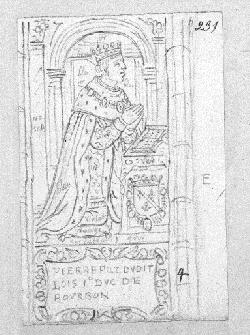 231
E.
4
PIERRE FILZ DUDIT
LOIS Iᵉʳ DUC DE
BOURBON